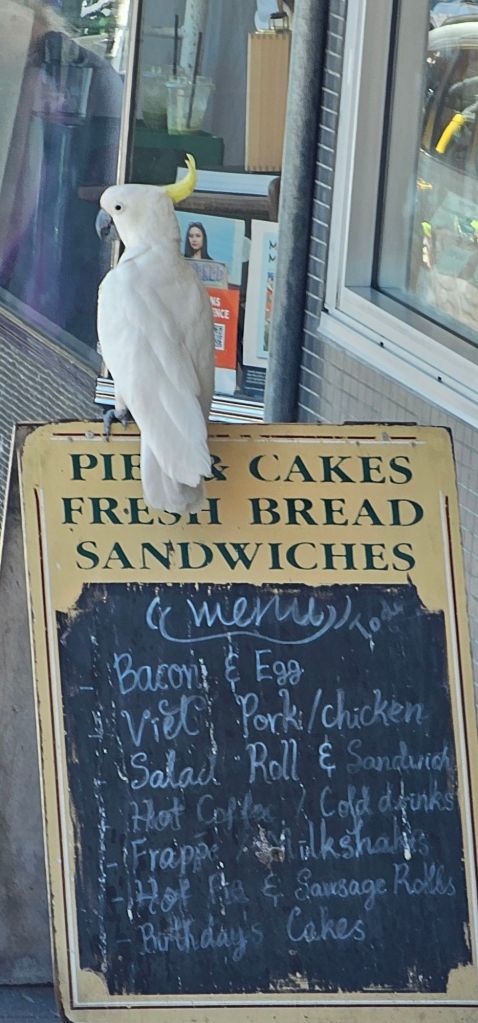 PIE & CAKES
FRESH BREAD
SANDWICHES
menu
- Bacon & Egg
Viet Pork/chicken
Salad Roll & Sandwich
Hot Coffee / Cold drinks
- Frappe / Milkshakes
- Hot Pie & Sausage Rolls
- Birthday's Cakes